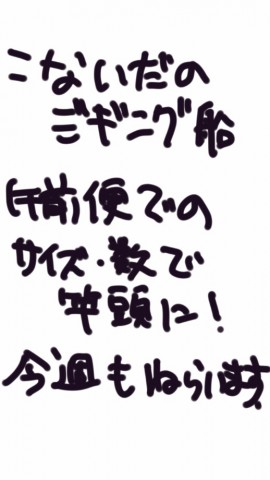 こないだの
ジギング船
午前便での
サイズ・数で
竿頭に!
今週もねらいます